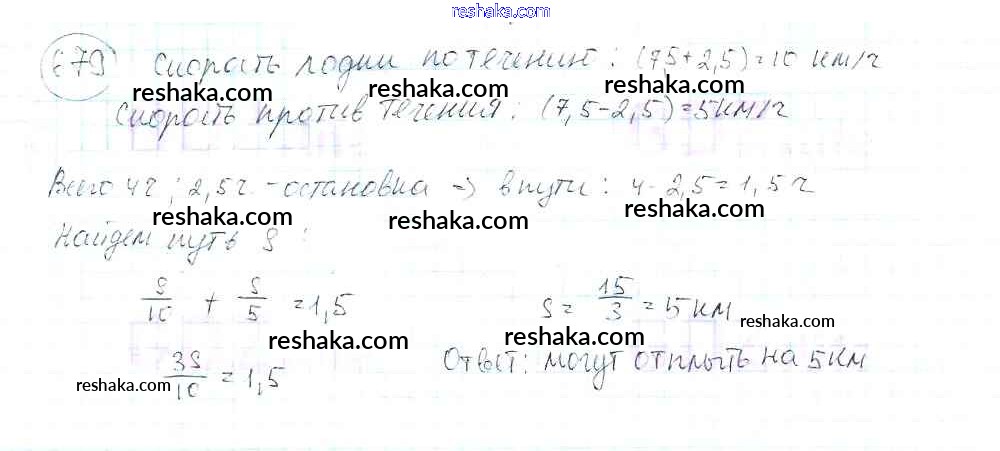 reshaka.com
679 Скорость лодки по течению: (7,5+2,5)=10 км/ч
reshaka.com reshaka.com reshaka.com
Скорость против течения: (7,5-2,5)=5км/ч
Всего 4ч; 2,5ч - остановка => в пути: 4-2,5=1,5ч
reshaka.com reshaka.com reshaka.com
Найдем путь S:
S/10 + S/5 = 1,5
S = 15/3 = 5 км
reshaka.com reshaka.com reshaka.com
3S/10 = 1,5
Ответ: могут отплыть на 5км
reshaka.com reshaka.com reshaka.com